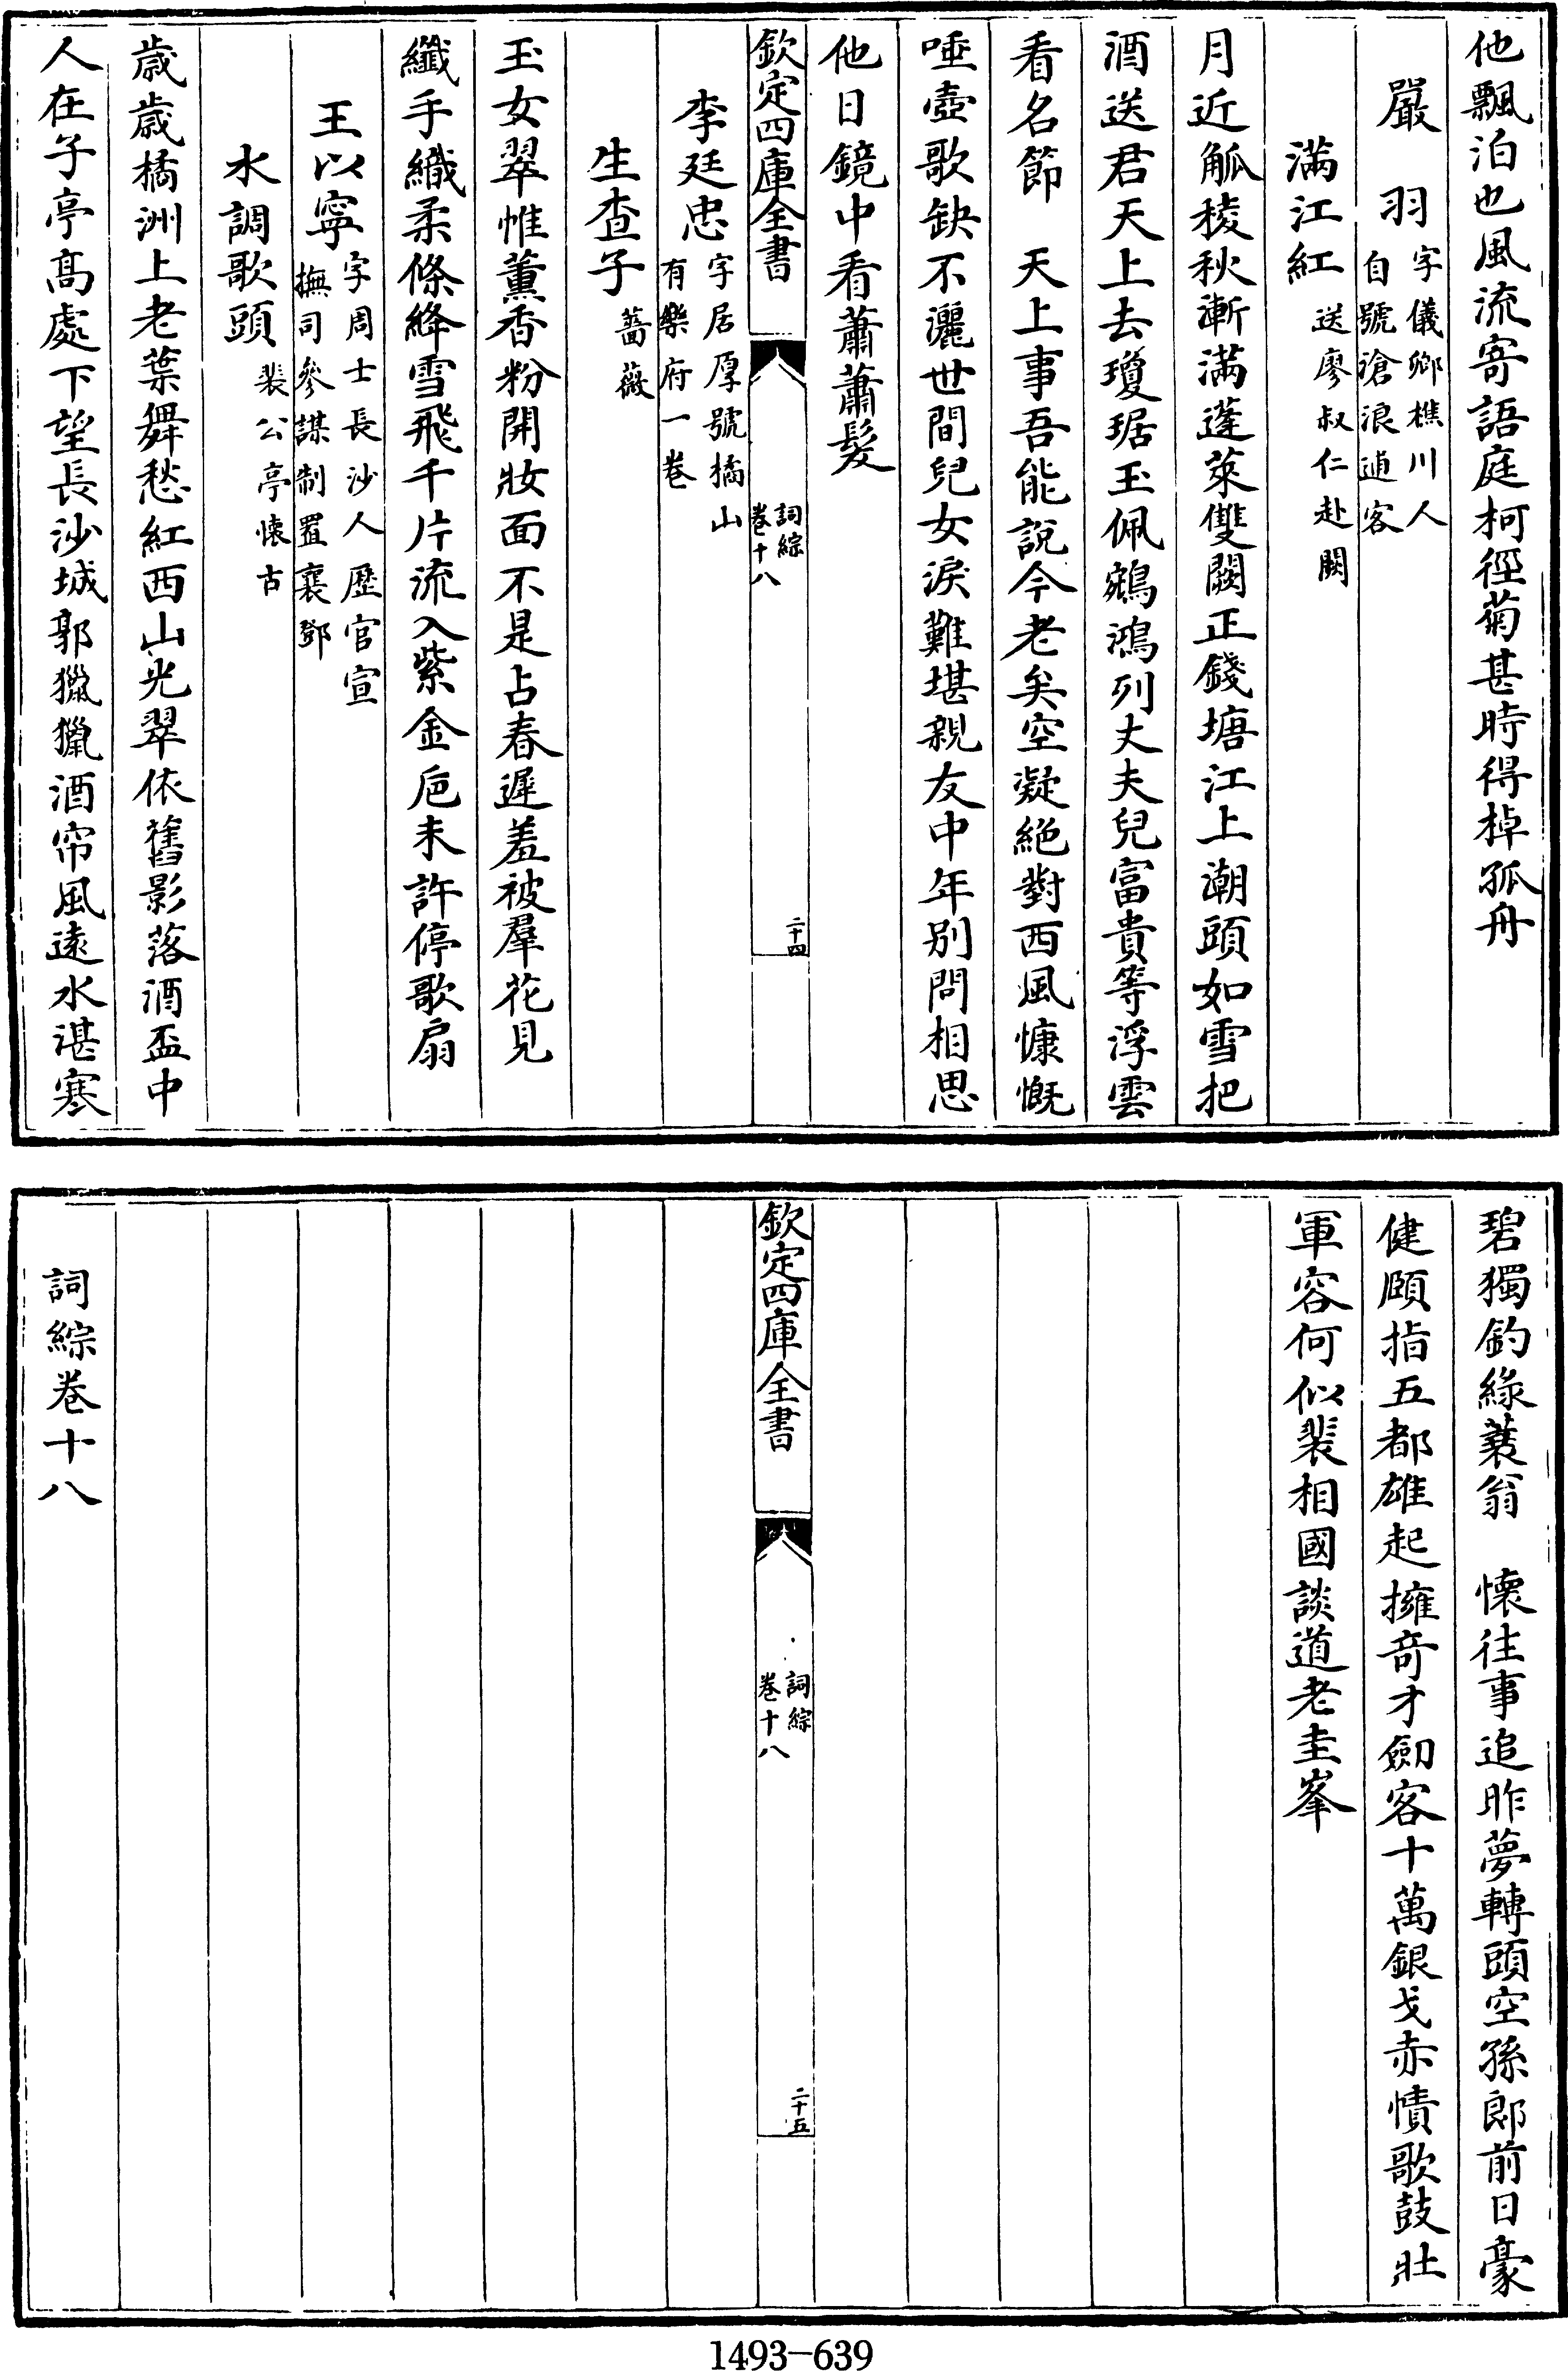 他飄泊也風流寄語庭柯徑菊甚時得棹孤舟
嚴　羽字儀卿樵川人
自號滄浪逋客
滿江紅送廖叔仁赴闕
月近觚稜秋漸滿蓬萊雙闕正錢塘江上潮頭如雪把
酒送君天上去瓊琚玉佩鵷鴻列丈夫兒富貴等浮雲
看名節　天上事吾能說今老矣空凝絕對西風慷慨
唾壺歌缺不灑世間兒女淚難堪親友中年別問相思
他日鏡中看蕭蕭髮
欽定四庫全書
詞綜
卷十八
二十四
李廷忠字居厚號橘山
有樂府一卷
生查子薔薇
玉女翠帷薰香粉開妝面不是占春遲羞被羣花見
纖手織柔條絳雪飛千片流入紫金巵未許停歌扇
王以寧字周士長沙人歷官宣
撫司參謀制置襄鄧
水調歌頭裴公亭懷古
歲歲橘洲上老葉舞愁紅西山光翠依舊影落酒盃中
人在子亭高處下望長沙城郭獵獵酒帘風遠水湛寒
碧獨釣綠蓑翁　懷往事追昨夢轉頭空孫郎前日豪
健頤指五都雄起擁奇才劍客十萬銀戈赤幘歌鼓壯
軍容何似裴相國談道老圭峯
欽定四庫全書
詞綜
卷十八
二十五
詞綜卷十八
1493-639